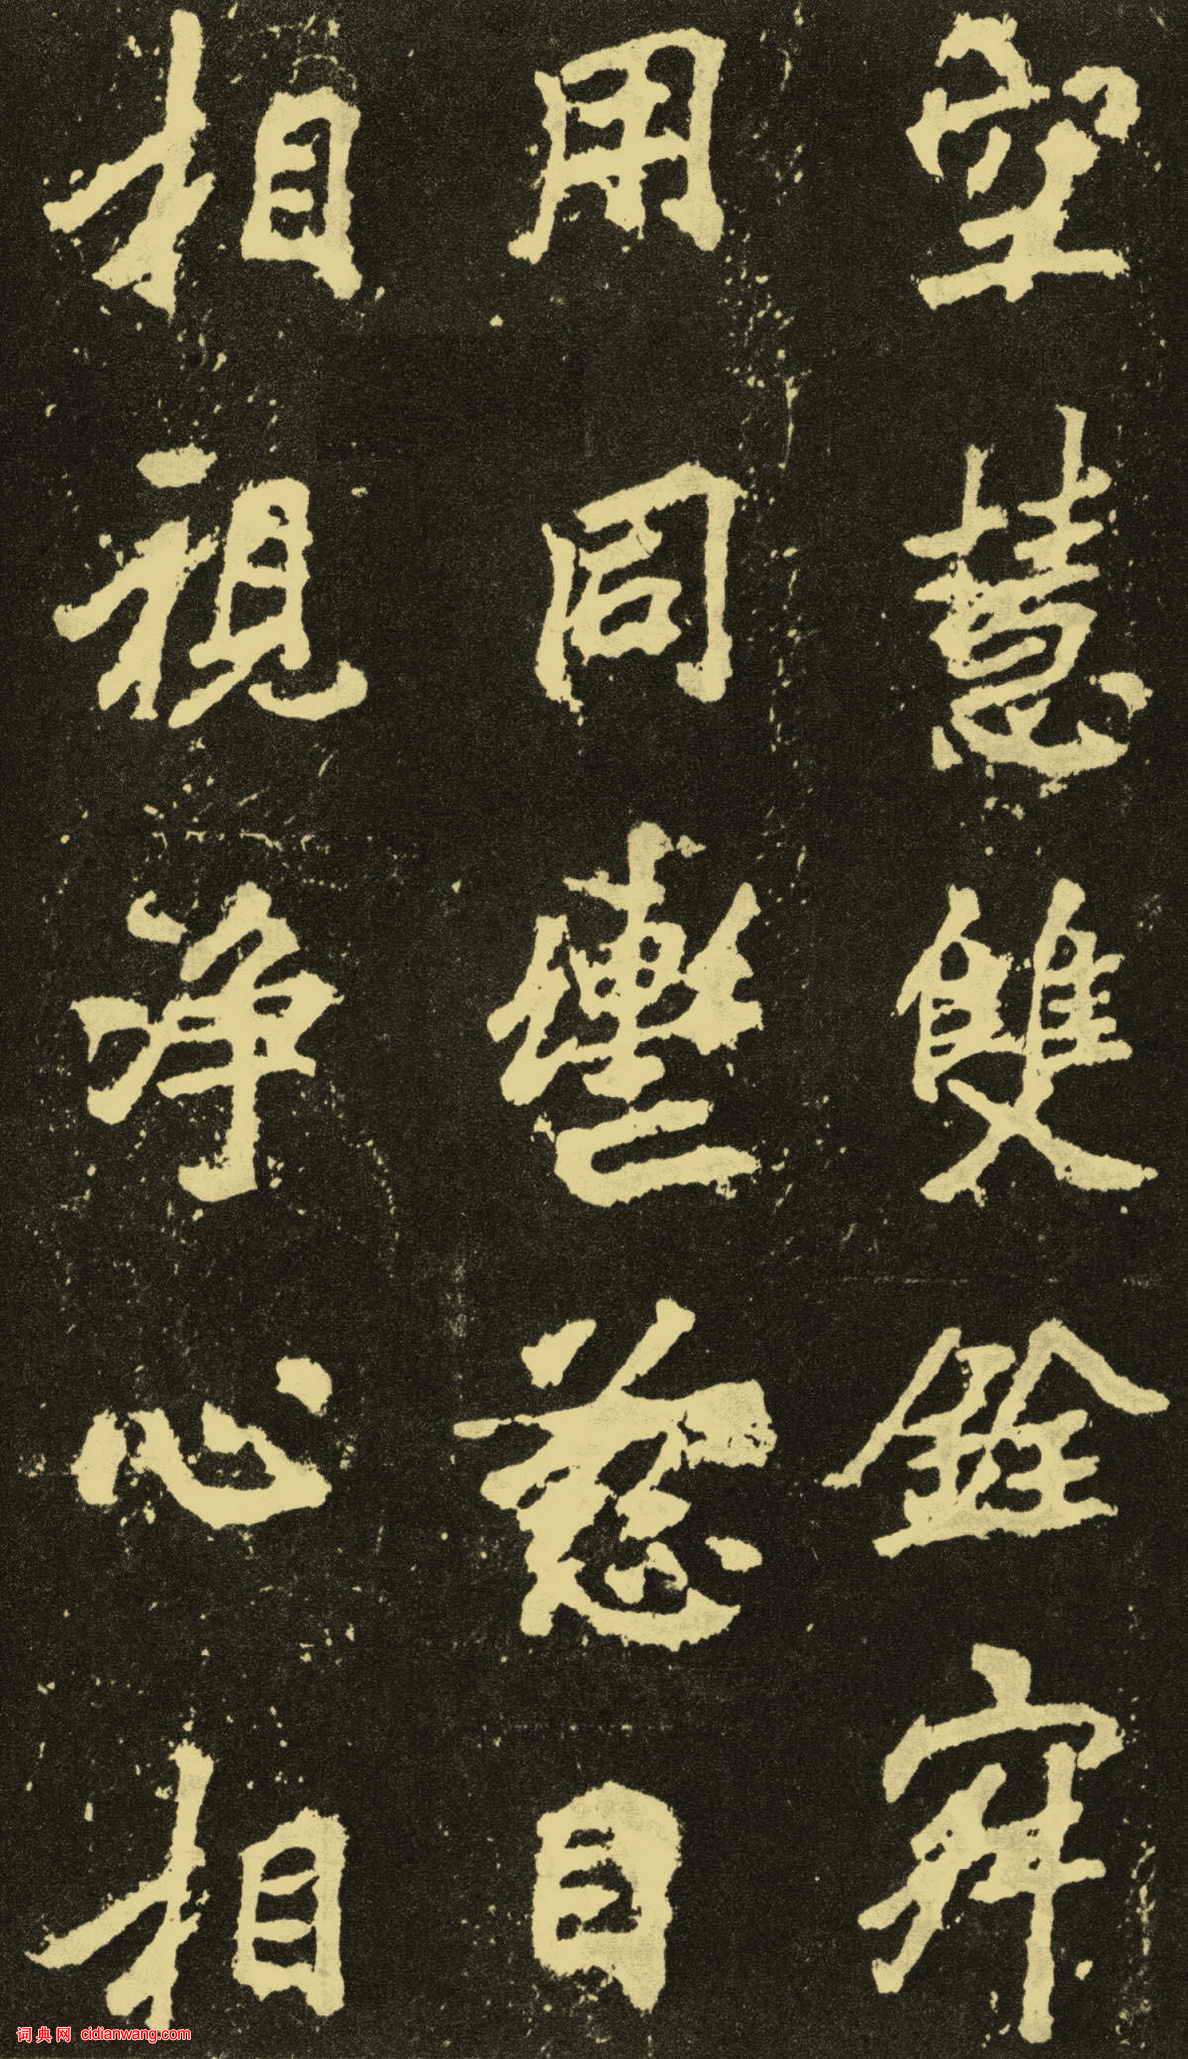 空慧雙銓寂
用同轡慈目
相視凈心相
词典网 cidianwang.com